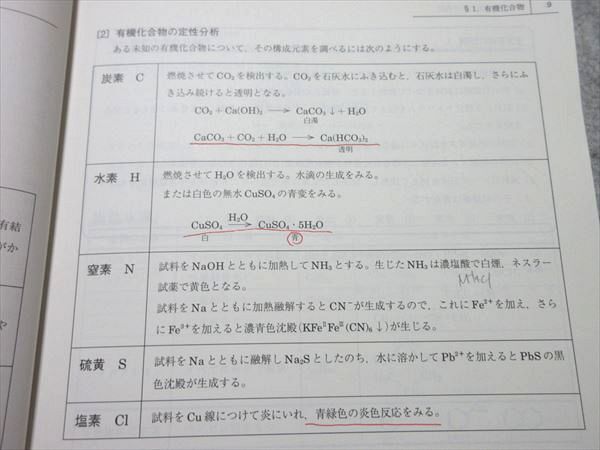 §1. 有機化合物 9
[2] 有機化合物の定性分析
ある未知の有機化合物について、その構成元素を調べるには次のようにする。
炭素 C
燃焼させてCO₂を検出する。CO₂を石灰水にふき込むと、石灰水は白濁し、さらにふ
き込み続けると透明となる。
CO₂ + Ca(OH)₂ ⟶ CaCO₃↓ + H₂O
白濁
CaCO₃ + CO₂ + H₂O ⟶ Ca(HCO₃)₂
透明
水素 H
燃焼させてH₂Oを検出する。水滴の生成をみる。
または白色の無水CuSO₄の青変をみる。
H₂O
CuSO₄ ⟶ CuSO₄・5H₂O
白 青
窒素 N
試料をNaOHとともに加熱してNH₃とする。生じたNH₃は濃塩酸で白煙、ネスラー
試薬で黄色となる。
試料をNaとともに加熱融解するとCN⁻が生成するので、これにFe²⁺を加え、さら
にFe³⁺を加えると濃青色沈殿(KFeᴵᴵFeᴵᴵᴵ(CN)₆↓)が生じる。
硫黄 S
試料をNaとともに融解しNa₂Sとしたのち、水に溶かしてPb²⁺を加えるとPbSの黒
色沈殿が生成する。
塩素 Cl
試料をCu線につけて炎にいれ、青緑色の炎色反応をみる。
有結
がか
や